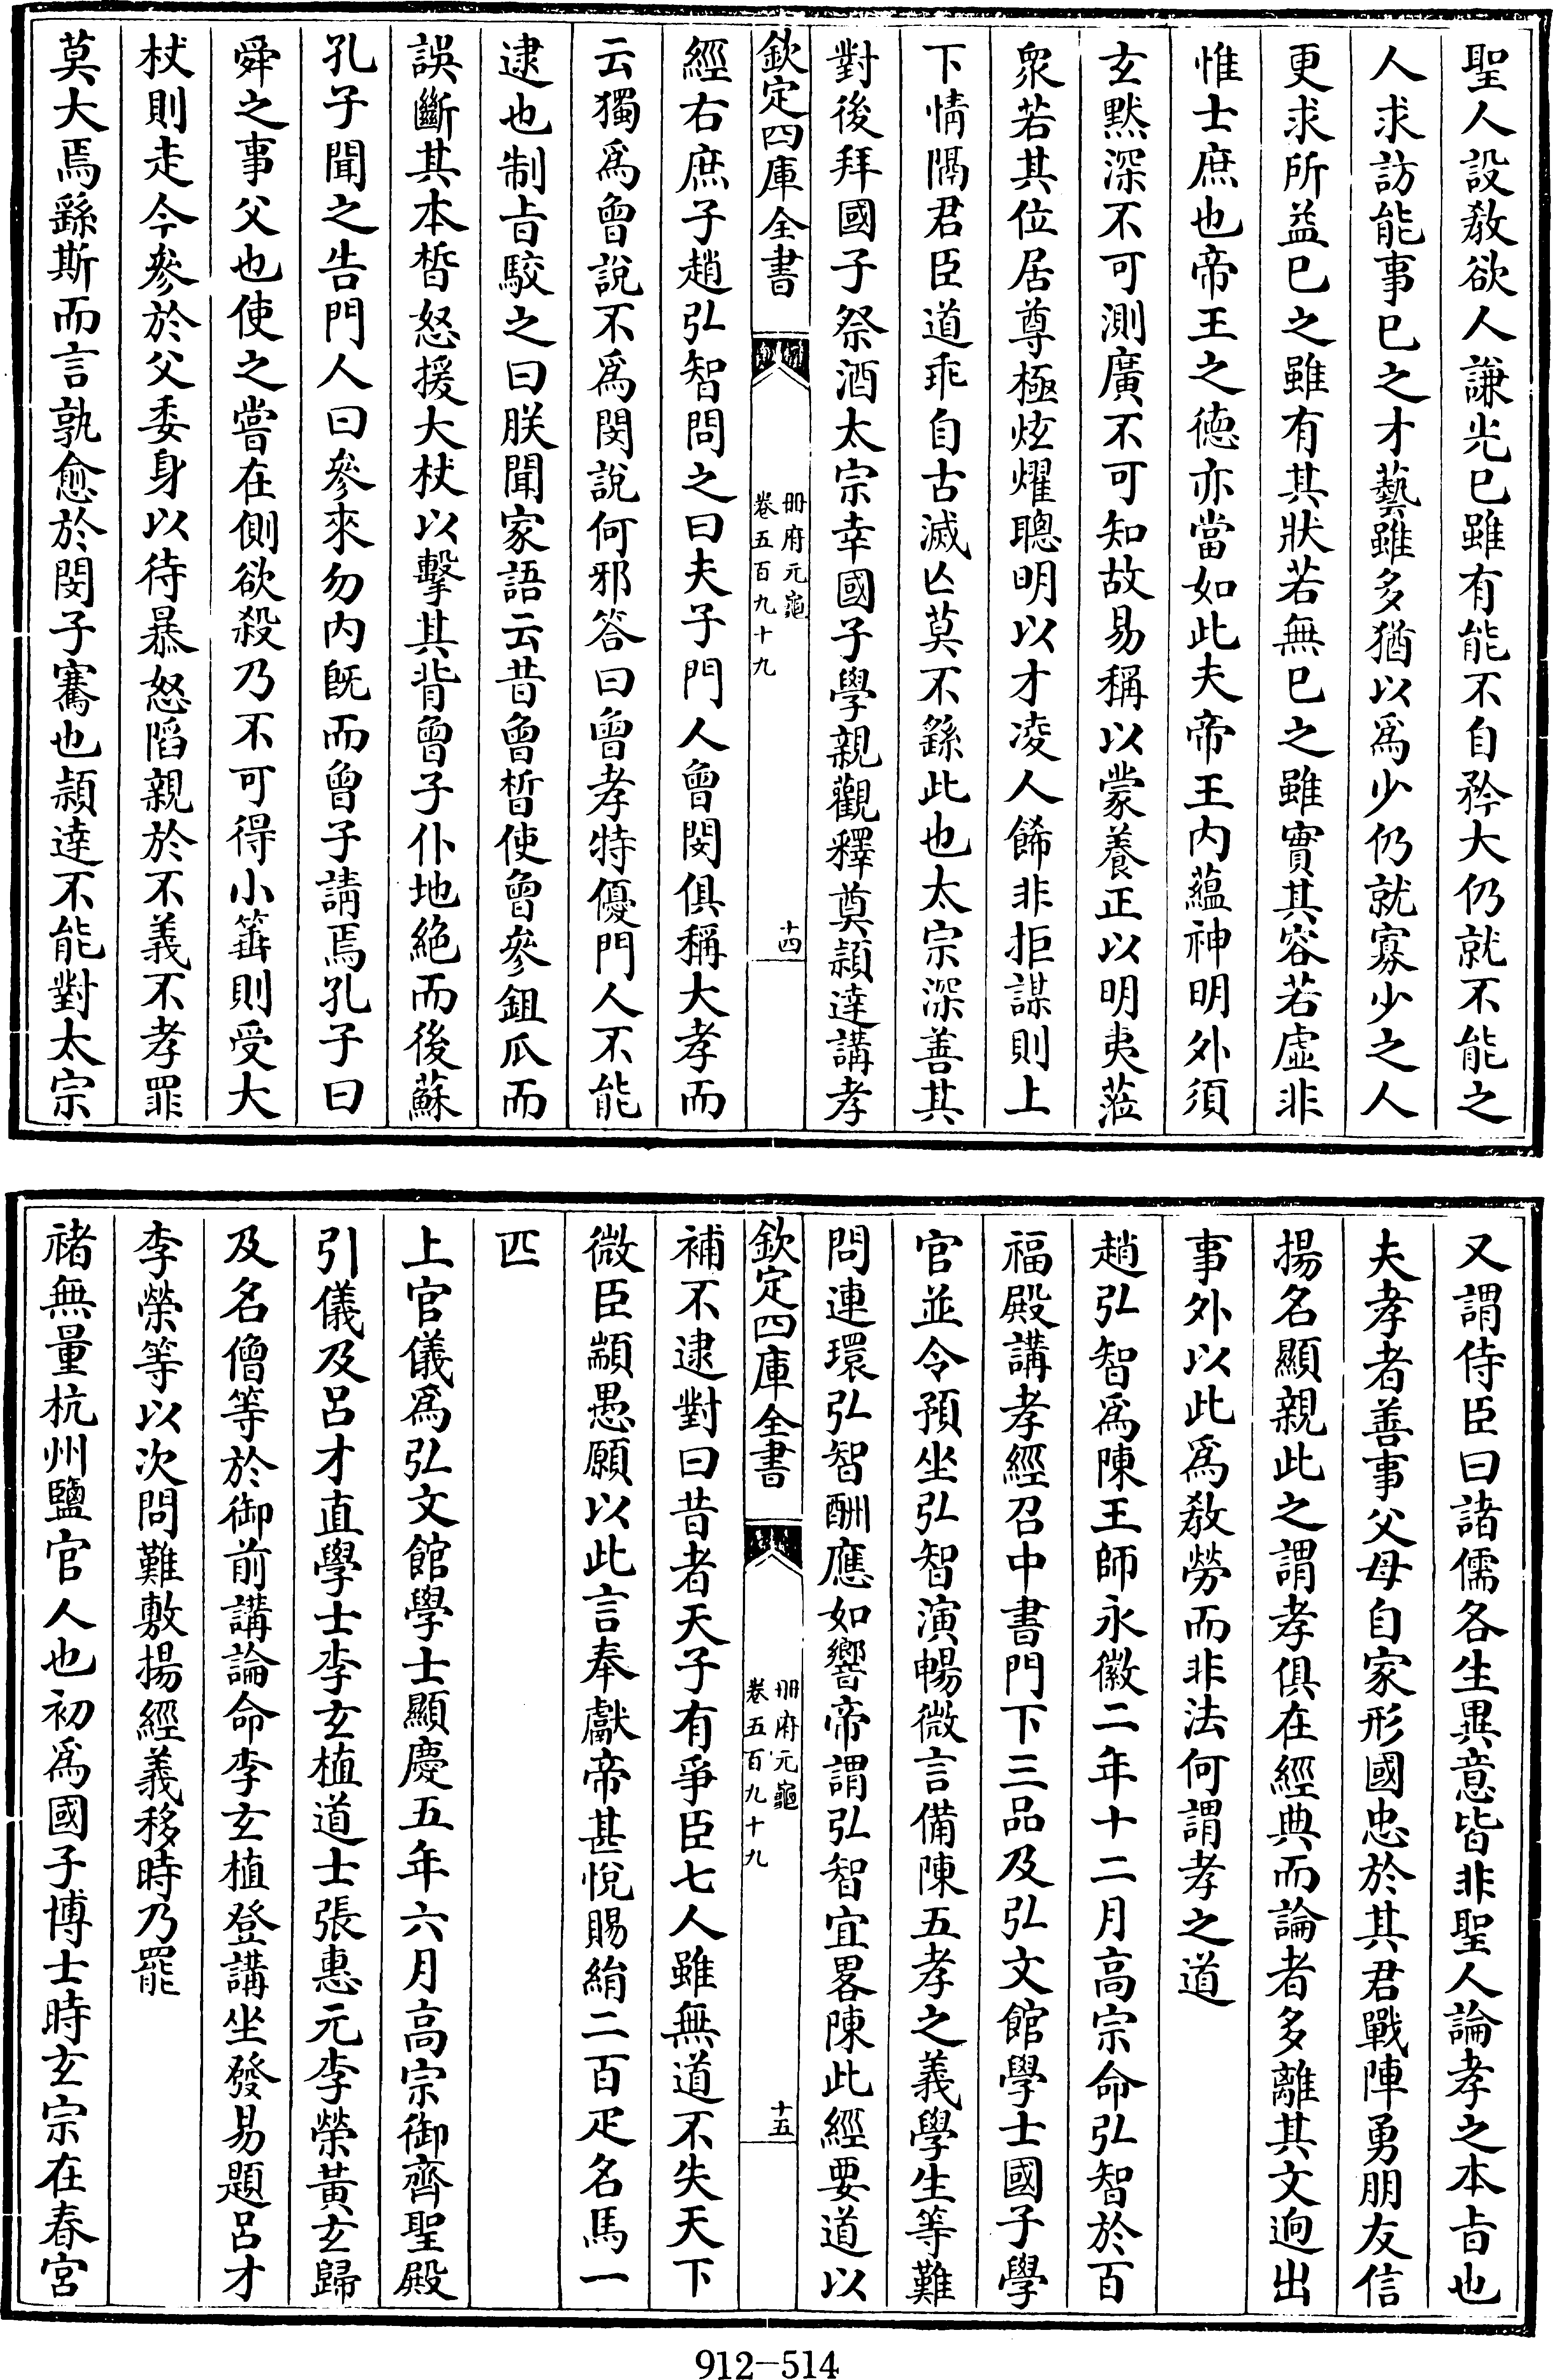 聖人設教欲人謙光已雖有能不自矜大仍就不能之
人求訪能事已之才藝雖多猶以為少仍就寡少之人
更求所益已之雖有其狀若無已之雖實其容若虛非
惟士庶也帝王之德亦當如此夫帝王内蘊神明外須
玄黙深不可測廣不可知故易稱以蒙養正以明夷蒞
衆若其位居尊極炫燿聰明以才凌人餙非拒諫則上
下情隔君臣道乖自古滅亾莫不繇此也太宗深善其
對後拜國子祭酒太宗幸國子學親觀釋奠頴達講孝
欽定四庫全書
冊府元龜
卷五百九十九
十四
經右庶子趙弘智問之曰夫子門人曾閔俱稱大孝而
云獨為曾說不為閔說何邪答曰曾孝特優門人不能
逮也制㫖駮之曰朕聞家語云昔曾晳使曾參鉏瓜而
誤斷其本晳怒援大杖以擊其背曾子仆地絶而後蘇
孔子聞之告門人曰參來勿内既而曾子請焉孔子曰
舜之事父也使之嘗在側欲殺乃不可得小箠則受大
杖則走今參於父委身以待暴怒陷親於不義不孝罪
莫大焉繇斯而言孰愈於閔子騫也頴達不能對太宗
又謂侍臣曰諸儒各生異意皆非聖人論孝之本㫖也
夫孝者善事父母自家形國忠於其君戰陣勇朋友信
揚名顯親此之謂孝俱在經典而論者多離其文逈出
事外以此為教勞而非法何謂孝之道
趙弘智為陳王師永徽二年十二月高宗命弘智於百
福殿講孝經召中書門下三品及弘文館學士國子學
官並令預坐弘智演暢微言備陳五孝之義學生等難
問連環弘智酬應如響帝謂弘智宜畧陳此經要道以
欽定四庫全書
冊府元龜
卷五百九十九
十五
補不逮對曰昔者天子有爭臣七人雖無道不失天下
微臣顓愚願以此言奉獻帝甚悅賜絹二百疋名馬一
匹
上官儀為弘文館學士顯慶五年六月高宗御齊聖殿
引儀及呂才直學士李玄植道士張惠元李榮黃玄歸
及名僧等於御前講論命李玄植登講坐發易題呂才
李榮等以次問難敷揚經義移時乃罷
褚無量杭州鹽官人也初為國子博士時玄宗在春宮
912-514